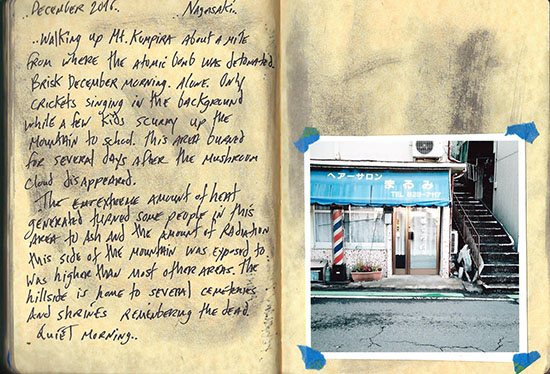 ..December 2016.. Nagasaki..
..Walking up Mt. Kompira about a mile
from where the atomic bomb was detonated.
Brisk December morning. Alone. Only
crickets singing in the background
while a few kids scurry up the
mountain to school. This area burned
for several days after the mushroom
cloud disappeared.
The extreme amount of heat
generated turned some people in this
area to ash and the amount of radiation
this side of the mountain was exposed to
was higher than most other areas. The
hillside is home to several cemeteries
and shrines remembering the dead.
Quiet morning..
ヘアーサロン
まるみ
TEL